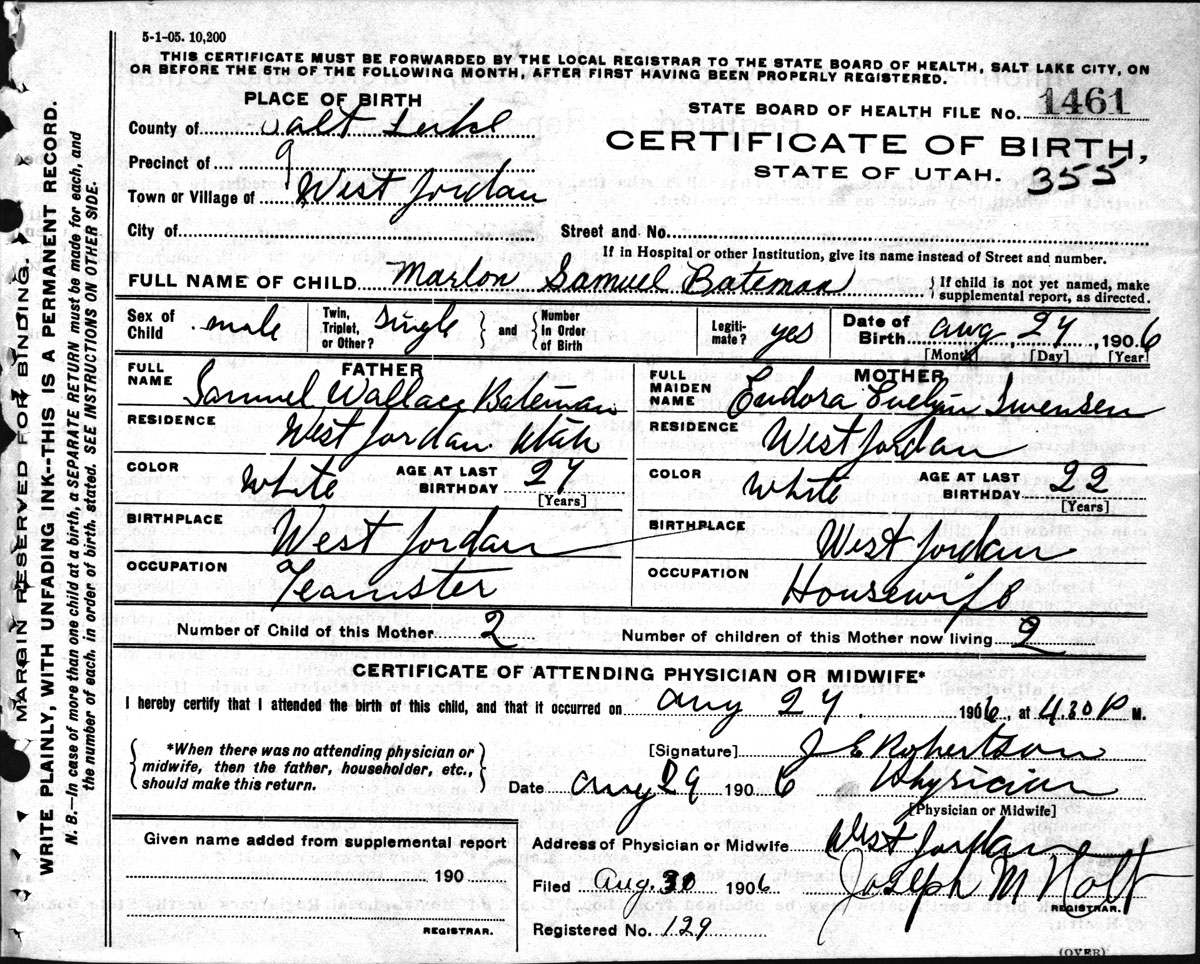 5-1-05. 10,200
THIS CERTIFICATE MUST BE FORWARDED BY THE LOCAL REGISTRAR TO THE STATE BOARD OF HEALTH, SALT LAKE CITY, ON
OR BEFORE THE 5TH OF THE FOLLOWING MONTH, AFTER FIRST HAVING BEEN PROPERLY REGISTERED.
PLACE OF BIRTH
STATE BOARD OF HEALTH FILE No. 1461
County of Salt Lake
CERTIFICATE OF BIRTH,
Precinct of
STATE OF UTAH. 355
Town or Village of West Jordan
City of Street and No.
If in Hospital or other Institution, give its name instead of Street and number.
FULL NAME OF CHILD Marlon Samuel Bateman { If child is not yet named, make supplemental report, as directed.
Sex of Child male Twin, Triplet, or Other? Single } and { Number in Order of Birth Legitimate? yes Date of Birth Aug 24 1906
[Month] [Day] [Year]
FATHER MOTHER
FULL NAME Samuel Wallace Bateman FULL MAIDEN NAME Eudora Evelyn Swensen
RESIDENCE West Jordan Utah RESIDENCE West Jordan
COLOR White AGE AT LAST BIRTHDAY 27 [Years] COLOR White AGE AT LAST BIRTHDAY 22 [Years]
BIRTHPLACE West Jordan BIRTHPLACE West Jordan
OCCUPATION Teamster OCCUPATION Housewife
Number of Child of this Mother 2 Number of children of this Mother now living 2
CERTIFICATE OF ATTENDING PHYSICIAN OR MIDWIFE*
I hereby certify that I attended the birth of this child, and that it occurred on Aug 24 1906, at 4.30 P M.
{ *When there was no attending physician or midwife, then the father, householder, etc., should make this return. }
[Signature] J E Robertson
Date Aug 29 1906 Physician
[Physician or Midwife]
Given name added from supplemental report
Address of Physician or Midwife West Jordan
190
Filed Aug. 30 1906 Joseph M Holt
REGISTRAR.
REGISTRAR.
Registered No. 129
(OVER)
MARGIN RESERVED FOR BINDING.
WRITE PLAINLY, WITH UNFADING INK--THIS IS A PERMANENT RECORD.
N. B.—In case of more than one child at a birth, a SEPARATE RETURN must be made for each, and
the number of each, in order of birth, stated. SEE INSTRUCTIONS ON OTHER SIDE.